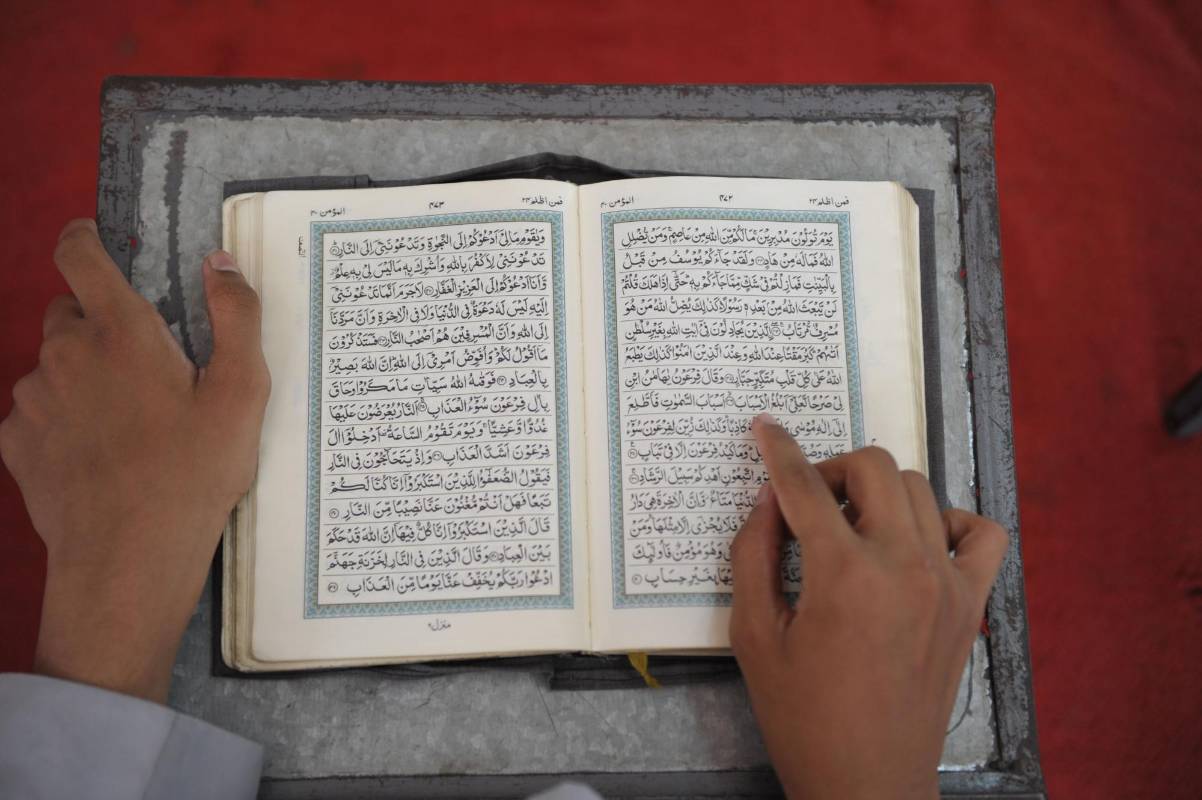 فمن اظلم ٢٤ ٤٧٢ المؤمن ٤٠
يَوْمَ تُوَلُّوْنَ مُدْبِرِيْنَ مَا لَكُمْ مِّنَ اللّٰهِ مِنْ عَاصِمٍ وَمَنْ يُّضْلِلِ
اللّٰهُ فَمَا لَهٗ مِنْ هَادٍ ٣٣ وَلَقَدْ جَآءَكُمْ يُوْسُفُ مِنْ قَبْلُ
بِالْبَيِّنٰتِ فَمَا زِلْتُمْ فِيْ شَكٍّ مِّمَّا جَآءَكُمْ بِهٖ حَتّٰٓى اِذَا هَلَكَ قُلْتُمْ
لَنْ يَّبْعَثَ اللّٰهُ مِنْ بَعْدِهٖ رَسُوْلًا كَذٰلِكَ يُضِلُّ اللّٰهُ مَنْ هُوَ
مُسْرِفٌ مُّرْتَابٌ ٣٤ الَّذِيْنَ يُجَادِلُوْنَ فِيْٓ اٰيٰتِ اللّٰهِ بِغَيْرِ سُلْطٰنٍ
اَتٰىهُمْ كَبُرَ مَقْتًا عِنْدَ اللّٰهِ وَعِنْدَ الَّذِيْنَ اٰمَنُوْا كَذٰلِكَ يَطْبَعُ
اللّٰهُ عَلٰى كُلِّ قَلْبِ مُتَكَبِّرٍ جَبَّارٍ ٣٥ وَقَالَ فِرْعَوْنُ يٰهَامٰنُ ابْنِ
لِيْ صَرْحًا لَّعَلِّيْٓ اَبْلُغُ الْاَسْبَابَ ٣٦ اَسْبَابَ السَّمٰوٰتِ فَاَطَّلِعَ
اِلٰٓى اِلٰهِ مُوْسٰى كَاذِبًا وَكَذٰلِكَ زُيِّنَ لِفِرْعَوْنَ سُوْٓءُ
عَمَلِهٖ وَصُدَّ وَمَا كَيْدُ فِرْعَوْنَ اِلَّا فِيْ تَبَابٍ ٣٧
اتَّبِعُوْنِ اَهْدِكُمْ سَبِيْلَ الرَّشَادِ ٣٨
الدُّنْيَا مَتَاعٌ وَّاِنَّ الْاٰخِرَةَ هِيَ دَارُ
فَلَا يُجْزٰٓى اِلَّا مِثْلَهَا وَمَنْ
وَهُوَ مُؤْمِنٌ فَاُولٰٓئِكَ
بِغَيْرِ حِسَابٍ ٤٠
فمن اظلم ٢٤ ٤٧٣ المؤمن ٤٠
وَيٰقَوْمِ مَا لِيْٓ اَدْعُوْكُمْ اِلَى النَّجٰوةِ وَتَدْعُوْنَنِيْٓ اِلَى النَّارِ ٤١
تَدْعُوْنَنِيْ لِاَكْفُرَ بِاللّٰهِ وَاُشْرِكَ بِهٖ مَا لَيْسَ لِيْ بِهٖ عِلْمٌ
وَّاَنَا اَدْعُوْكُمْ اِلَى الْعَزِيْزِ الْغَفَّارِ ٤٢ لَا جَرَمَ اَنَّمَا تَدْعُوْنَنِيْٓ
اِلَيْهِ لَيْسَ لَهٗ دَعْوَةٌ فِى الدُّنْيَا وَلَا فِى الْاٰخِرَةِ وَاَنَّ مَرَدَّنَآ
اِلَى اللّٰهِ وَاَنَّ الْمُسْرِفِيْنَ هُمْ اَصْحٰبُ النَّارِ ٤٣ فَسَتَذْكُرُوْنَ
مَآ اَقُوْلُ لَكُمْ وَاُفَوِّضُ اَمْرِيْٓ اِلَى اللّٰهِ اِنَّ اللّٰهَ بَصِيْرٌۢ
بِالْعِبَادِ ٤٤ فَوَقٰىهُ اللّٰهُ سَيِّاٰتِ مَا مَكَرُوْا وَحَاقَ
بِاٰلِ فِرْعَوْنَ سُوْٓءُ الْعَذَابِ ٤٥ اَلنَّارُ يُعْرَضُوْنَ عَلَيْهَا
غُدُوًّا وَّعَشِيًّا وَيَوْمَ تَقُوْمُ السَّاعَةُ اَدْخِلُوْٓا اٰلَ
فِرْعَوْنَ اَشَدَّ الْعَذَابِ ٤٦ وَاِذْ يَتَحَآجُّوْنَ فِى النَّارِ
فَيَقُوْلُ الضُّعَفٰٓؤُا لِلَّذِيْنَ اسْتَكْبَرُوْٓا اِنَّا كُنَّا لَكُمْ
تَبَعًا فَهَلْ اَنْتُمْ مُّغْنُوْنَ عَنَّا نَصِيْبًا مِّنَ النَّارِ ٤٧
قَالَ الَّذِيْنَ اسْتَكْبَرُوْٓا اِنَّا كُلٌّ فِيْهَآ اِنَّ اللّٰهَ قَدْ حَكَمَ
بَيْنَ الْعِبَادِ ٤٨ وَقَالَ الَّذِيْنَ فِى النَّارِ لِخَزَنَةِ جَهَنَّمَ
ادْعُوْا رَبَّكُمْ يُخَفِّفْ عَنَّا يَوْمًا مِّنَ الْعَذَابِ ٤٩
منزل ٦